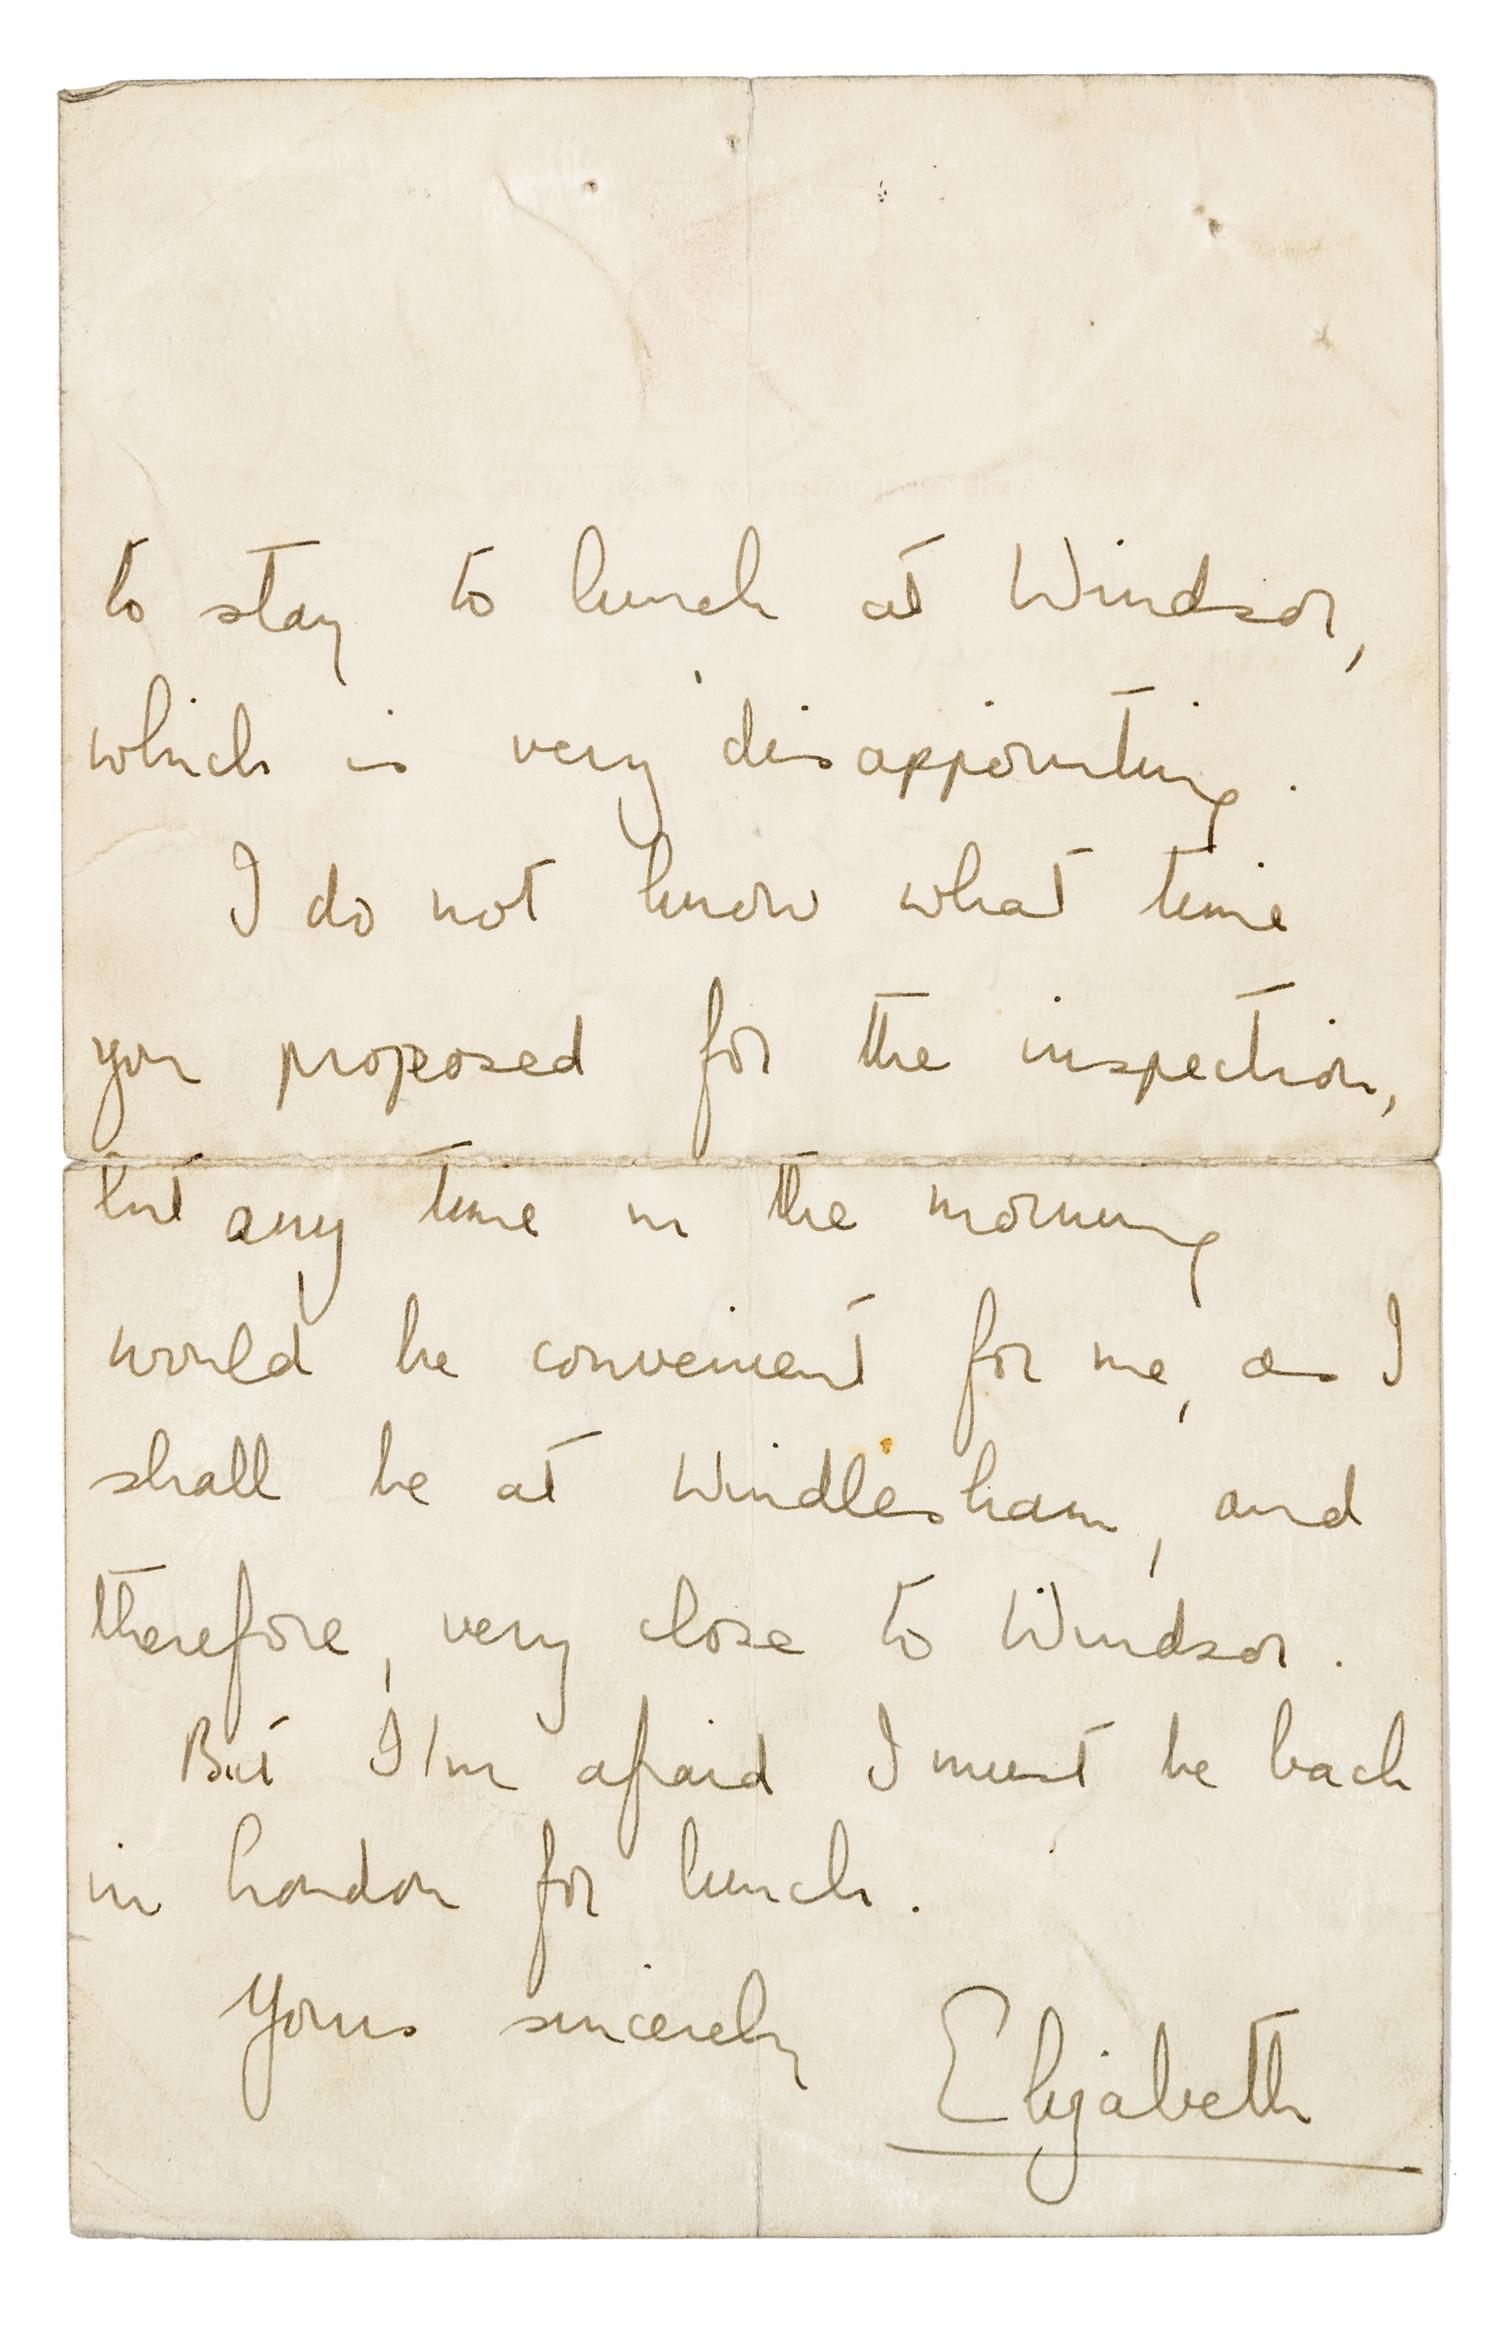 to stay to lunch at Windsor,
which is very disappointing.
I do not know what time
you proposed for the inspection,
but any time in the morning
would be convenient for me, as I
shall be at Windlesham, and
therefore, very close to Windsor.
But I'm afraid I must be back
in London for lunch.
Yours sincerely
Elizabeth